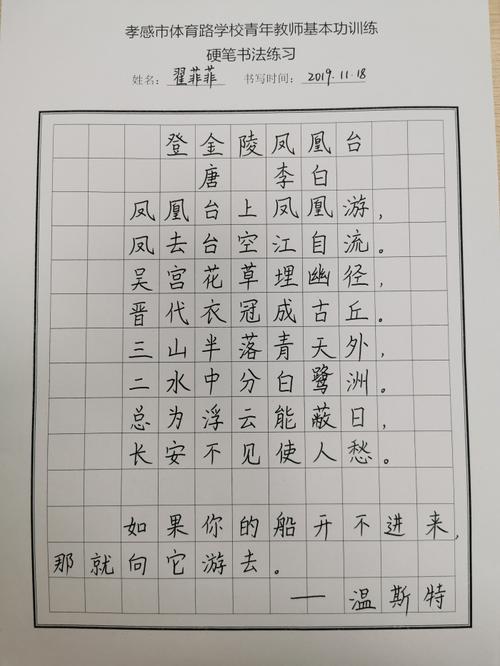 孝感市体育路学校青年教师基本功训练
硬笔书法练习
姓名：翟菲菲 书写时间：2019.11.18
登金陵凤凰台
唐 李白
凤凰台上凤凰游，
凤去台空江自流。
吴宫花草埋幽径，
晋代衣冠成古丘。
三山半落青天外，
二水中分白鹭洲。
总为浮云能蔽日，
长安不见使人愁。
如果你的船开不进来，
那就向它游去。
——温斯特